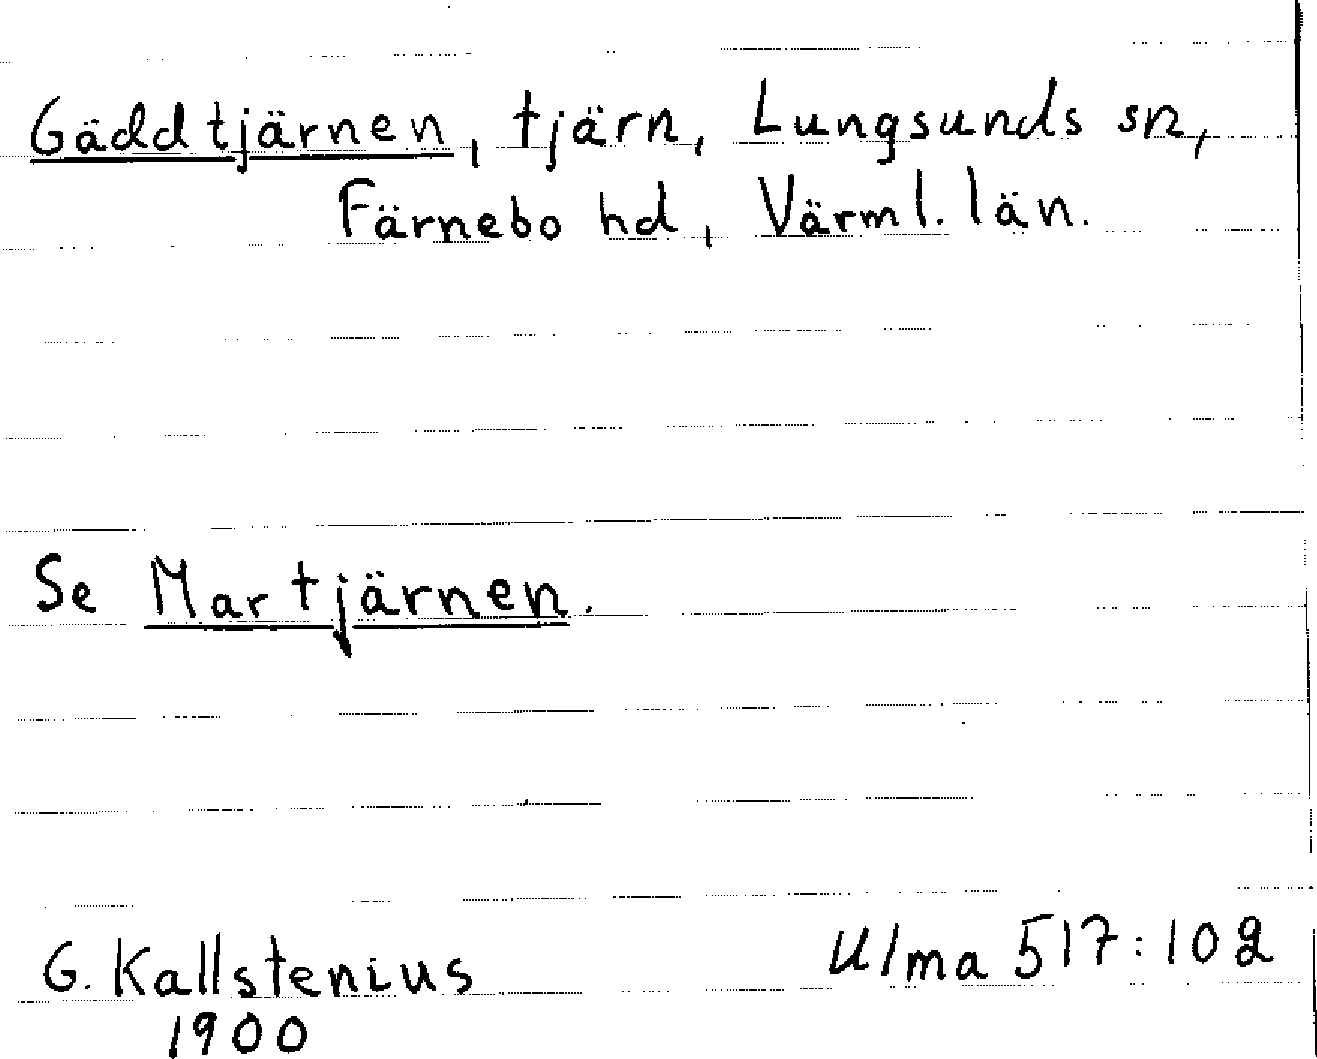 Gäddtjärnen, tjärn, Lungsunds sn,
Färnebo hd, Värml. län.
Se Martjärnen.
G. Kallstenius
1900
Ulma 517:102